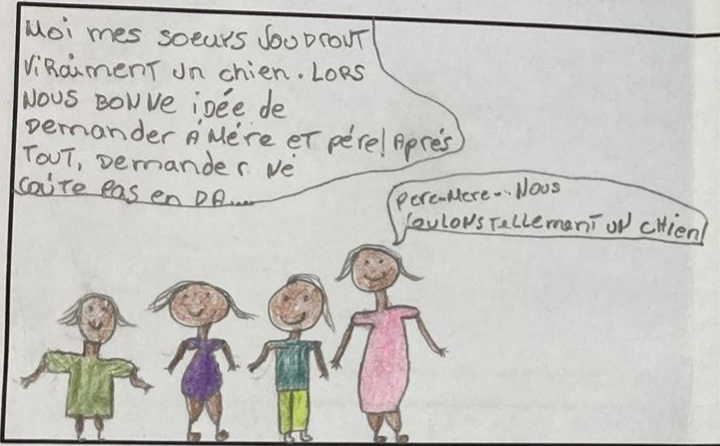 Moi mes soeurs VOUDROUT
ViRaiment UN chien. LORS
NOUS BONNE iDée de
Demander À Mére ET pére! Aprés
TOUT, Demander Né
coûte Pas en DA....
pere-Mere... NOUS
VOULONS TeLLement UN CHien!